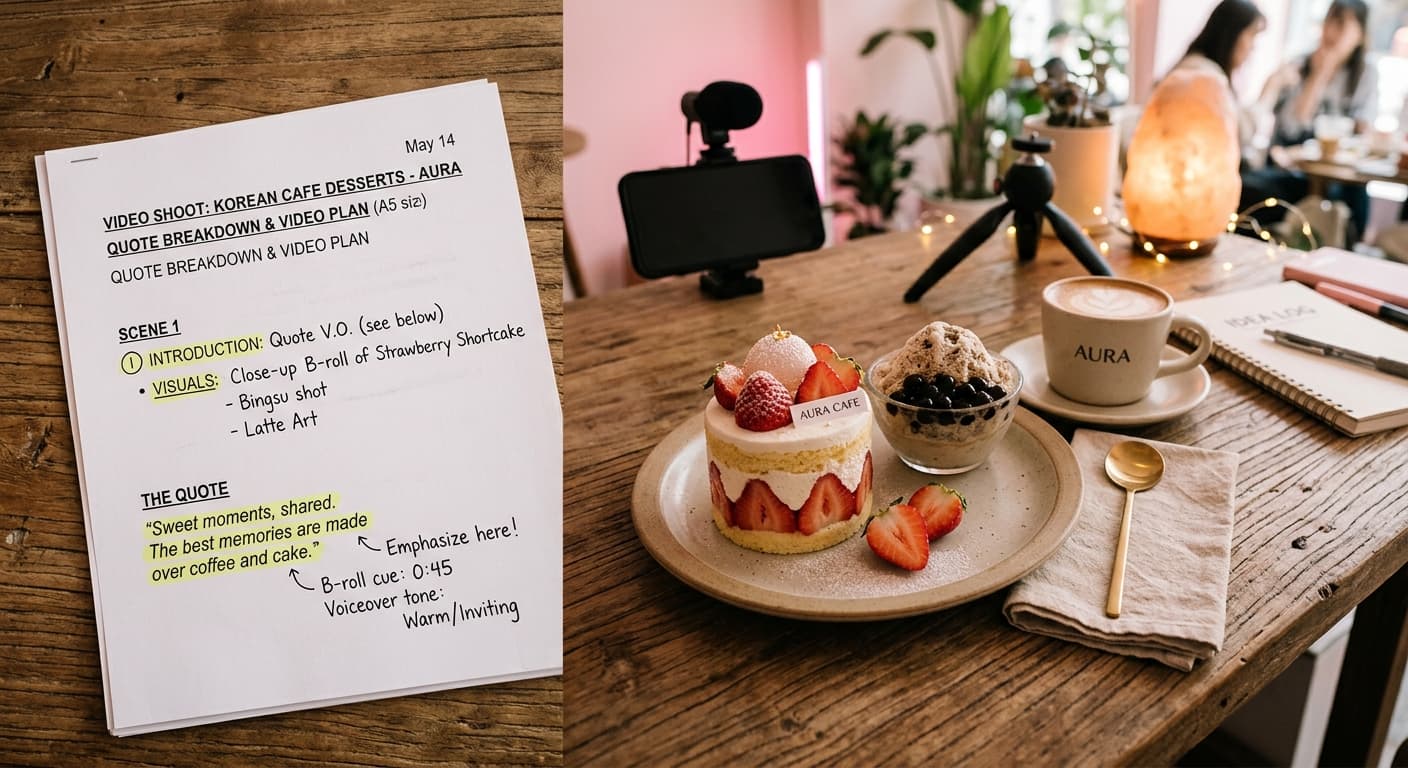 May 14
VIDEO SHOOT: KOREAN CAFE DESSERTS - AURA
QUOTE BREAKDOWN & VIDEO PLAN (A5 siz)
QUOTE BREAKDOWN & VIDEO PLAN
SCENE 1
1 INTRODUCTION: Quote V.O. (see below)
• VISUALS: Close-up B-roll of Strawberry Shortcake
- Bingsu shot
- Latte Art
THE QUOTE
"Sweet moments, shared.
The best memories are made
over coffee and cake."
Emphasize here!
B-roll cue: 0:45
Voiceover tone:
Warm/Inviting
AURA CAFE
AURA
IDEA LOG